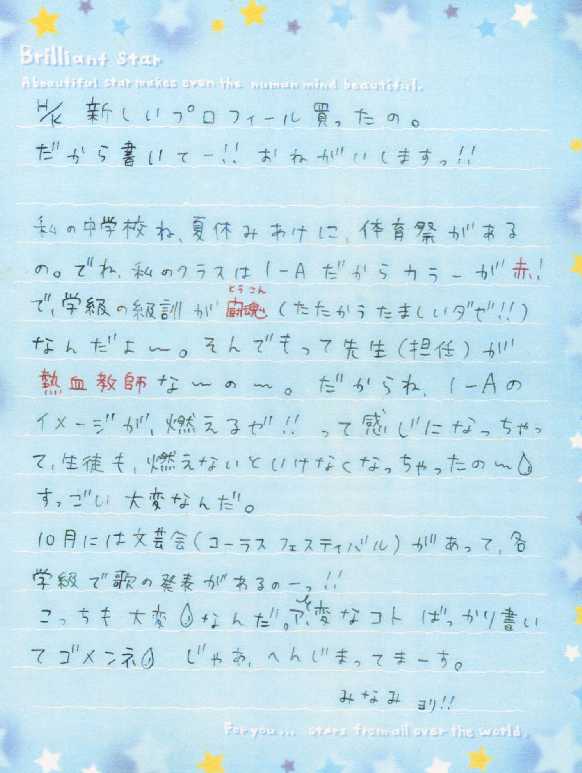 Brilliant Star
A beautiful star makes even the human mind beautiful.
H/K 新しいプロフィール買ったの。
だから書いてー!! おねがいしますっ!!
私の中学校ね、夏休みあけに、体育祭がある
の。でね、私のクラスは1-Aだからカラーが赤!
とうこん
で、学級の級訓が闘魂(たたかうたましいダゼ!!)
なんだよ〜。そんでもって先生(担任)が
熱血教師な〜の〜。だからね、1-Aの
イメージが、燃えるゼ!! って感じになっちゃっ
て、生徒も、燃えないといけなくなっちゃったの〜
すっごい大変なんだ。
10月には文芸会(コーラスフェスティバル)があって、各
学級で歌の発表があるのーっ!!
こっちも大変なんだ。ア、変なコトばっかり書い
と
てゴメンネ じゃあ、へんじまってまーす。
みなみ ヨリ!!
For you... stars from all over the world.